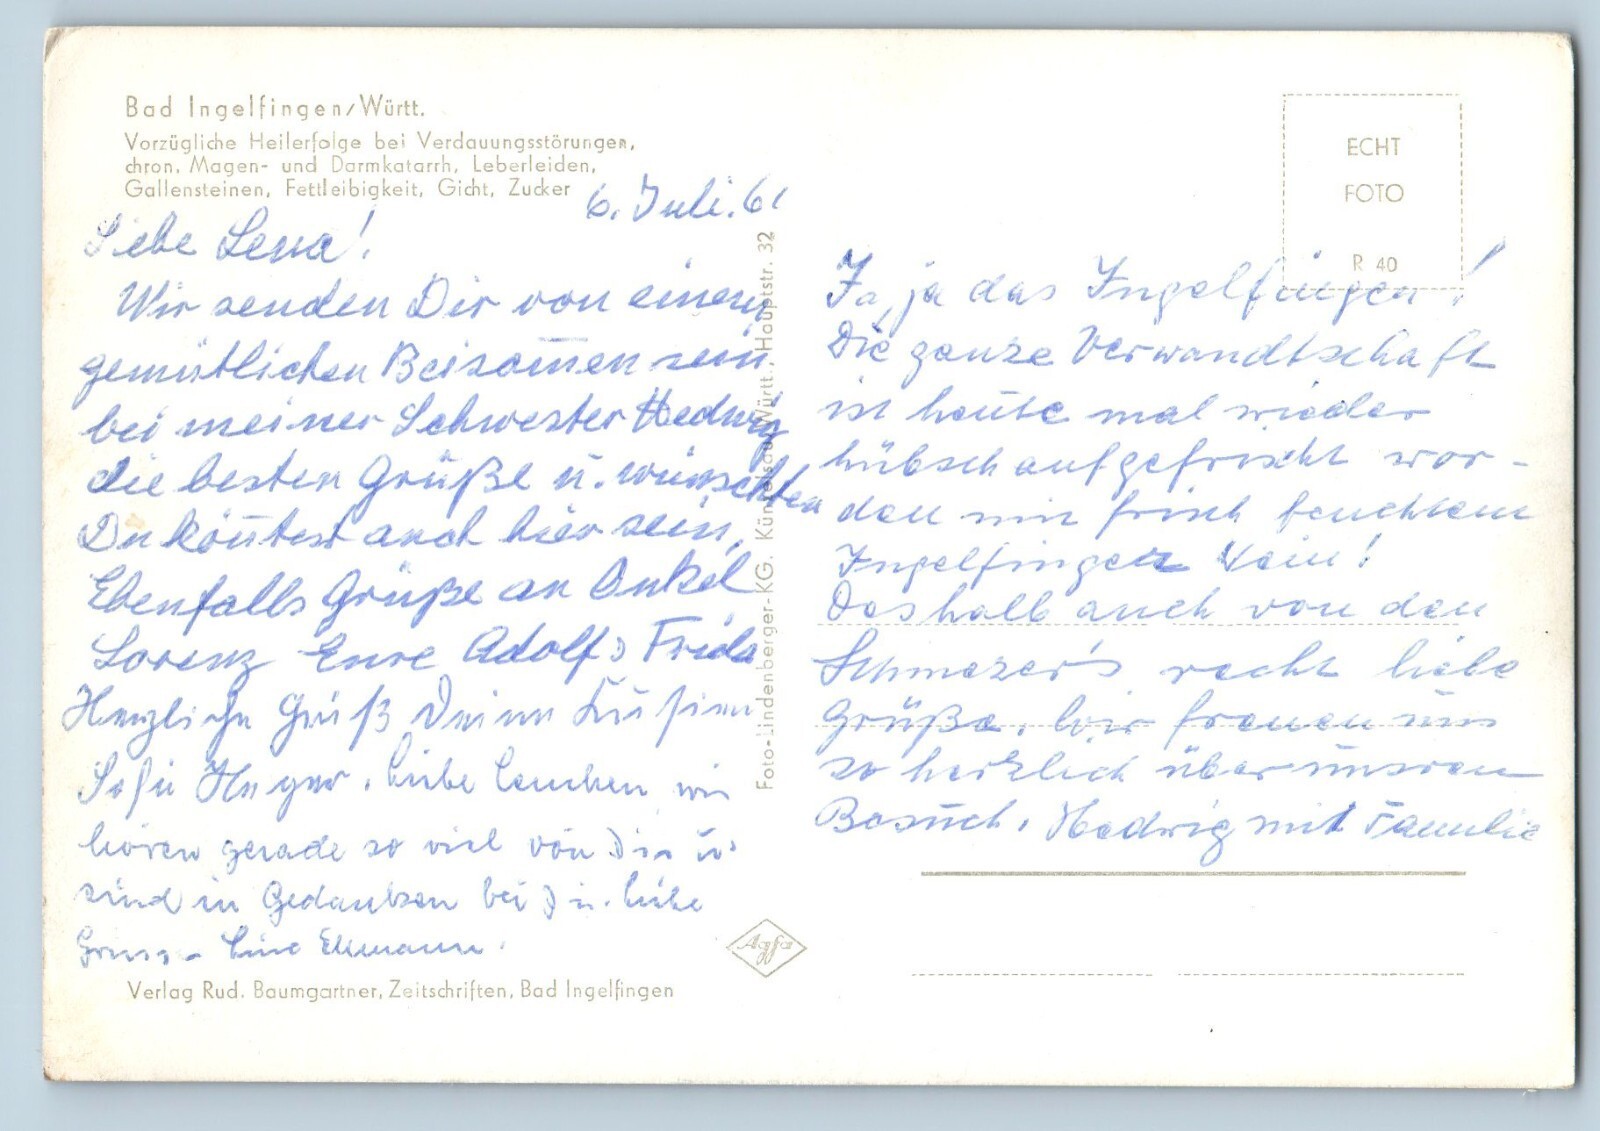 Bad Ingelfingen/Württ.
Vorzügliche Heilerfolge bei Verdauungsstörungen,
chron. Magen- und Darmkatarrh, Leberleiden,
Gallensteinen, Fettleibigkeit, Gicht, Zucker
6. Juli. 61
Liebe Lena!
Wir senden Dir von einem
gemütlichen Beisam̅en sein
bei meiner Schwester Hedwig
die besten Grüße u. wünschten
Du kön̅test auch hier sein,
Ebenfalls Grüße an Onkel
Lorenz Eure Adolf, Frida
Herzliche Grüß Deine Kusine
Sofie liebe Lenchen wir
hören gerade so viel von Dir u.
sind in Gedanken bei D u. liebe
Grüsse Line
Verlag Rud. Baumgartner, Zeitschriften, Bad Ingelfingen
Foto-Lindenberger-KG. Künzelsau/Württ., Hauptstr. 32
Agfa
ECHT
FOTO
R 40
Ja, ja das Ingelfingen!
Die ganze Verwandtschaft
ist heute mal wieder
hübsch aufgefrischt wor-
den mit frisch feuchtem
Ingelfinger Wein!
Deshalb auch von den
recht liebe
Grüße. Wir freuen uns
so herzlich über unseren
Besuch. Hedwig mit Familie